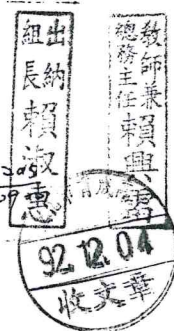 教師兼
總務主任賴興
出納
組長賴淑惠
92.12.04
收文章